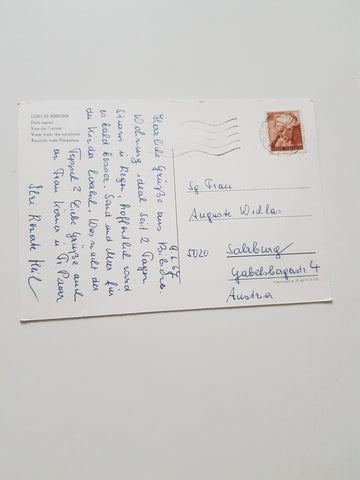 LIDO DI BIBIONE
Dall'aereo
Vue de l'avion
View from the airplane
Ansicht vom Flugzeug
9.6.67
Herzliche Grüße aus Bibione.
Wohnung ideal seit 2 Tagen
Sturm u. Regen, hoffentlich wird
es bald besser. Sand und Meer für
die Kinder herrlich. Was macht der
Teppich? Liebe Grüße auch
an Frau u.
Ihre Renate
Sg. Frau
Auguste
5020 Salzburg
Gabelsbergerstr. 4
Austria